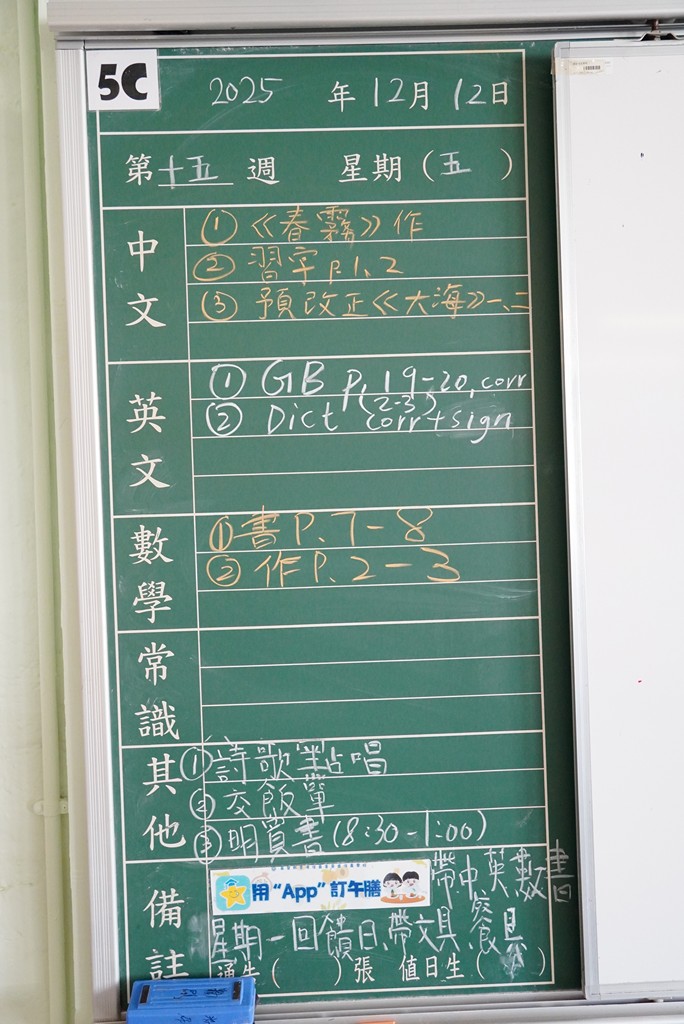 5C
2025 年 12月 12日
第十五週 星期(五)
中文
① 《春霧》作
② 習字 p.1、2
③ 預改正《大海》一、二
英文
① GB p.19-20, corr
② Dict (2-3) corr + sign
數學
① 書 P.7-8
② 作 P.2-3
常識
其他
① 詩歌點唱
② 交飯單
③ 明賞書 (8:30-1:00)
備註
用“App”訂午膳
帶中英數書
星期一回饋日、帶文具、餐具
通告( )張 值日生( )